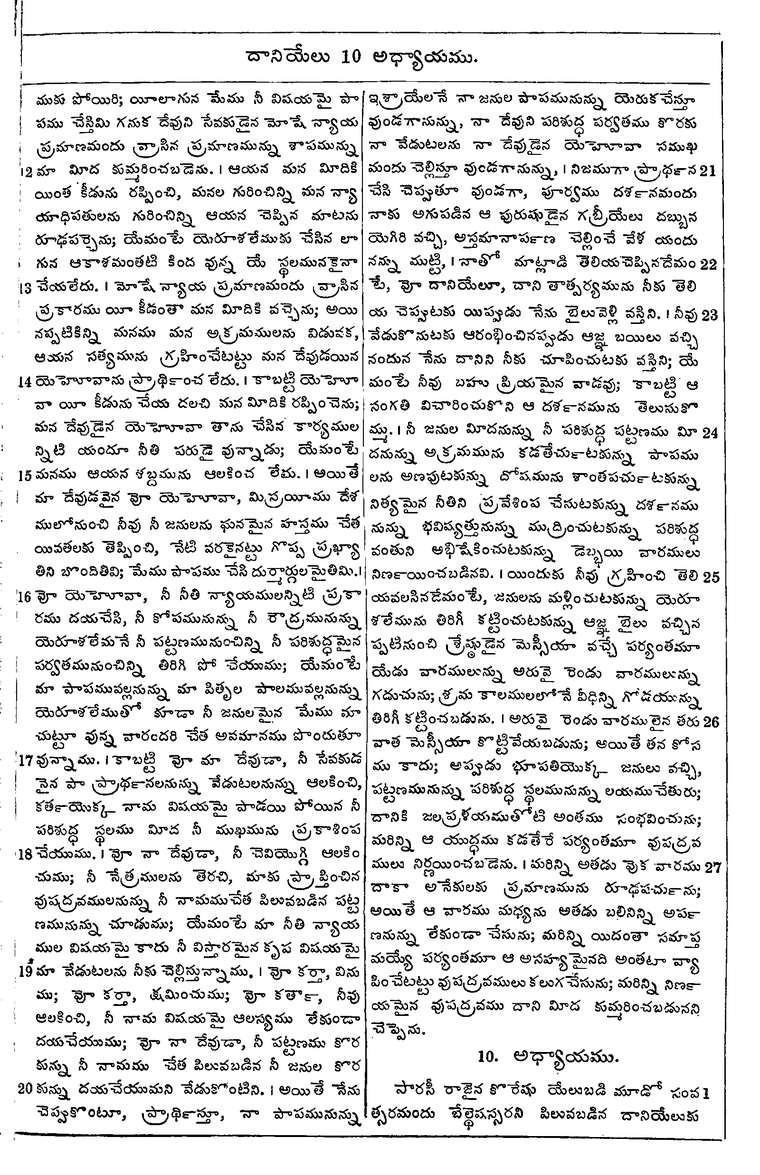 దానియేలు 10 అధ్యాయము.
ముకు పోయిరి; యీలాగున మేము నీ విషయమై పా
పము చేస్తిమి గనుక దేవుని సేవకుడైన మోషే న్యాయ
ప్రమాణమందు వ్రాసిన ప్రమాణమున్ను శాపమున్ను
12 మా మీద కుమ్మరించబడెను. । ఆయన మన మీదికి
యింత కీడును రప్పించి, మనల గురించిన్ని మన న్యా
యాధిపతులను గురించిన్ని ఆయన చెప్పిన మాటను
రూఢపర్చెను; యేమంటే యెరూశలేముకు చేసిన లా
గున ఆకాశమంతటి కింద వున్న యే స్థలమునకైనా
13 చేయలేదు. । మోషే న్యాయ ప్రమాణమందు వ్రాసిన
ప్రకారము యీ కీడంతా మన మీదికి వచ్చెను; అయి
నప్పటికిన్ని మనము మన అక్రమములను విడువక,
ఆయన సత్యమును గ్రహించేటట్టు మన దేవుడయిన
14 యెహోవాను ప్రార్థించ లేదు. । కాబట్టి యెహో
వా యీ కీడును చేయ దలచి మన మీదికి రప్పించెను;
మన దేవుడైన యెహోవా తాను చేసిన కార్యముల
న్నిటి యందూ నీతి పరుడై వున్నాడు; యేమంటే
15 మనము ఆయన శబ్దమును ఆలకించ లేము. । అయితే
మా దేవుడవైన వో యెహోవా, మిస్రయీము దేశ
ములోనుంచి నీవు నీ జనులను ఘనమైన హస్తము చేత
యివతలకు తెప్పించి, నేటి వరకైనట్టు గొప్ప ప్రఖ్యా
తిని బొందితివి; మేము పాపము చేసి దుర్మార్గులమైతిమి.।
16 వో యెహోవా, నీ నీతి న్యాయములన్నిటి ప్రకా
రము దయచేసి, నీ కోపమునున్ను నీ రౌద్రమునున్ను
యెరూశలేమనే నీ పట్టణమునుంచిన్ని నీ పరిశుద్ధమైన
పర్వతమునుంచిన్ని తిరిగి పో చేయుము; యేమంటే
మా పాపమువల్లనున్ను మా పితృల పాలమువల్లనున్ను
యెరూశలేముతో కూడా నీ జనులమైన మేము మా
చుట్టూ వున్న వారందరి చేత అవమానము పొందుతూ
17 వున్నాము. । కాబట్టి వో మా దేవుడా, నీ సేవకుడ
నైన పా ప్రార్థనలనున్ను వేడుటలనున్ను ఆలకించి,
కర్తయొక్క నామ విషయమై పాడయి పోయిన నీ
పరిశుద్ధ స్థలము మీద నీ ముఖమును ప్రకాశింప
18 చేయుము. । వో నా దేవుడా, నీ చెవియొగ్గి ఆలకిం
చుము; నీ నేత్రములను తెరచి, మాకు ప్రాప్తించిన
వుపద్రవములనున్ను నీ నామముచేత పిలువబడిన పట్ట
ణమునున్ను చూడుము; యేమంటే మా నీతి న్యాయ
ముల విషయమై కాదు నీ విస్తారమైన కృప విషయమై
19 మా వేడుటలను నీకు చెల్లిస్తున్నాము. । వో కర్తా, విను
ము; వో కర్తా, క్షమించుము; వో కర్తా, నీవు
ఆలకించి, నీ నామ విషయమై ఆలస్యము లేకుండా
దయచేయుము; వో నా దేవుడా, నీ పట్టణము కొర
కున్ను నీ నామము చేత పిలువబడిన నీ జనుల కొర
20 కున్ను దయచేయుమని వేడుకొంటిని. । అయితే నేను
చెప్పుకొంటూ, ప్రార్థిస్తూ, నా పాపమునున్ను
ఇశ్రాయేలనే నా జనుల పాపమునున్ను యెరుకచేస్తూ
వుండగానున్ను, నా దేవుని పరిశుద్ధ పర్వతము కొరకు
నా వేడుటలను నా దేవుడైన యెహోవా సముఖ
మందు చెల్లిస్తూ వుండగానున్ను, । నిజముగా ప్రార్థన 21
చేసి చెప్పుతూ వుండగా, పూర్వము దర్శనమందు
నాకు అగుపడిన ఆ పురుషుడైన గబ్రీయేలు దబ్బున
యెగిరి వచ్చి, అస్తమానార్పణ చెల్లించే వేళ యందు
నన్ను ముట్టి, । నాతో మాట్లాడి తెలియచెప్పినదేమం 22
టే, వో దానియేలూ, దాని తాత్పర్యమును నీకు తెలి
య చెప్పుటకు యిప్పుడు నేను బైలువెళ్లి వస్తిని. । నీవు 23
వేడుకొనుటకు ఆరంభించినప్పుడు ఆజ్ఞ బయిలు వచ్చి
నందున నేను దానిని నీకు చూపించుటకు వస్తిని; యే
మంటే నీవు బహు ప్రియమైన వాడవు; కాబట్టి ఆ
సంగతి విచారించుకొని ఆ దర్శనమును తెలుసుకొ
మ్ము. । నీ జనుల మీదనున్ను నీ పరిశుద్ధ పట్టణము మీ 24
దనున్ను అక్రమమును కడతేర్చుటకున్ను పాపము
లను అణపుటకున్ను దోషమును శాంతపర్చుటకున్ను
నిత్యమైన నీతిని ప్రవేశింప చేసుటకున్ను దర్శనము
నున్ను భవిష్యత్తునున్ను ముద్రించుటకున్ను పరిశుద్ధ
వంతుని అభిషేకించుటకున్ను డెబ్బయి వారములు
నిర్ణయించబడినవి. । యిందుకు నీవు గ్రహించి తెలి 25
యవలసినదేమంటే, జనులను మళ్లించుటకున్ను యెరూ
శలేమును తిరిగీ కట్టించుటకున్ను ఆజ్ఞ బైలు వచ్చిన
ప్పటినుంచి శ్రేష్ఠుడైన మెస్సీయా వచ్చే పర్యంతమూ
యేడు వారములున్ను అరువై రెండు వారములున్ను
గడుచును; శ్రమ కాలములలోనే వీధిన్ని గోడయున్ను
తిరిగీ కట్టించబడును. । అరువై రెండు వారములైన తరు 26
వాత మెస్సీయా కొట్టివేయబడును; అయితే తన కోస
ము కాదు; అప్పుడు భూపతియొక్క జనులు వచ్చి,
పట్టణమునున్ను పరిశుద్ధ స్థలమునున్ను లయము చేతురు;
దానికి జలప్రళయముతోటి అంతము సంభవించును;
మరిన్ని ఆ యుద్ధము కడతేరే పర్యంతమూ వుపద్రవ
ములు నిర్ణయించబడెను. । మరిన్ని అతడు వొక వారము 27
దాకా అనేకులకు ప్రమాణమును రూఢపర్చును;
అయితే ఆ వారము మధ్యను అతడు బలినిన్ని అర్ప
ణనున్ను లేకుండా చేసును; మరిన్ని యిదంతా సమాప్త
మయ్యే పర్యంతమూ ఆ అసహ్యమైనది అంతటా వ్యా
పించేటట్టు వుపద్రవములు కలుగచేసును; మరిన్ని నిర్ణ
యమైన వుపద్రవము దాని మీద కుమ్మరించబడునని
చెప్పెను.
10. అధ్యాయము.
పారసీ రాజైన కొరేషు యేలుబడి మూడో సంవ 1
త్సరమందు బేల్తెషస్సరని పిలువబడిన దానియేలుకు